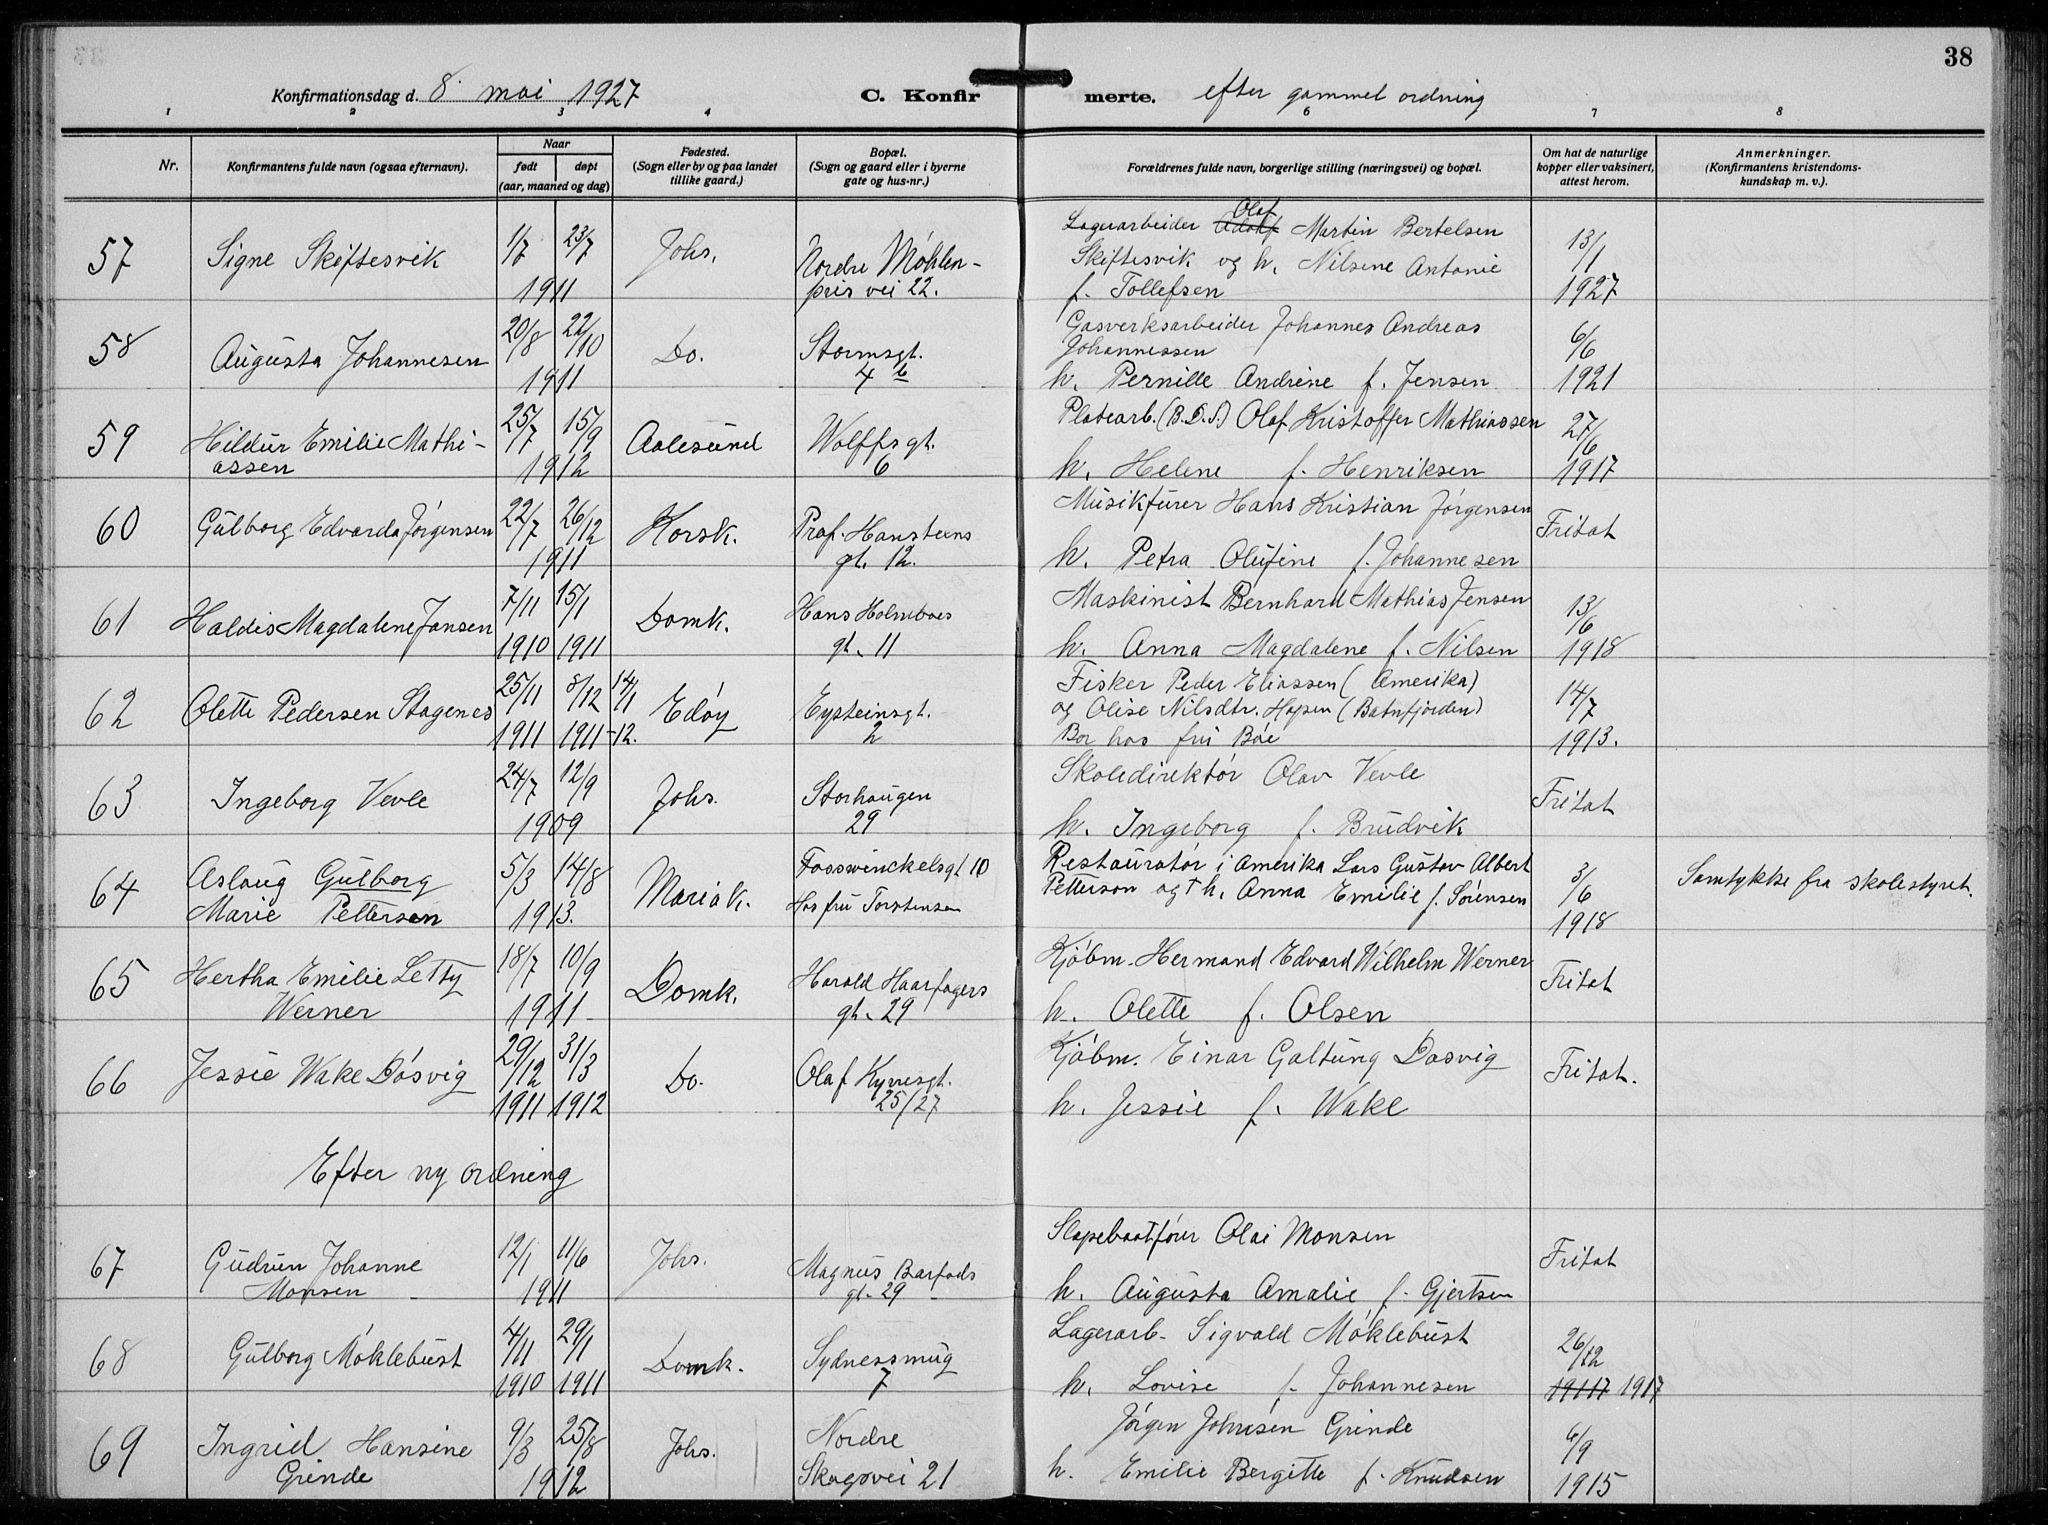 38
Konfirmationsdag d. 8. mai 1927 C. Konfirmerte. efter gammel ordning
1 2 3 4 6 7 8
Nr. Konfirmantens fulde navn (ogsaa efternavn). Naar født døpt (aar, maaned og dag) Fødested. (Sogn eller by og paa landet tillike gaard.) Bopæl. (Sogn og gaard eller i byerne gate og hus-nr.) Forældrenes fulde navn, borgerlige stilling (næringsvei) og bopæl. Om hat de naturlige kopper eller vaksinert, attest herom. Anmerkninger. (Konfirmantens kristendoms-kundskap m. v.).
57 Signe Skiftesvik 1/7 23/7 1911 Johs. Nordre Møhlen-
pris vei 22.
Lagerarbeider Adolf Olaf Martin Bertelsen
Skiftesvik og h. Nilsene Antonie
f. Tollefsen 13/1 1927
58 Augusta Johannesen 20/8 22/10 1911 Do. Stormsgt.
4 b
Gasverksarbeider Johannes Andreas
Johannessen
h. Pernille Andrine f. Jensen 6/6 1921
59 Hildur Emilie Mathi-
assen 25/7 15/9 1912 Aalesund Wolffsgt.
6
Platearb. (B.D.S.) Olaf Kristoffer Mathiassen
h. Helene f. Henriksen 27/6 1917
60 Gulborg Edvarda Jørgensen 22/7 26/12 1911 Korsk. Prof. Hansteens
gt. 12.
Musikfurer Hans Kristian Jørgensen
h. Petra Olufine f. Johannesen Fritat
61 Haldis Magdalene Jansen 7/11 1910 15/1 1911 Domk. Hans Holmboes
gt. 11
Maskinist Bernhard Mathias Jensen
h. Anna Magdalene f. Nilsen 13/6 1918
62 Olette Pedersen Stagenes 25/11 1911 8/12 1911 14/1 -12. Edøy Eysteinsgt.
2
Fisker Peder Eliassen (Amerika)
og Olise Nilsdtr. Hopen (Batnfjorden)
Bor hos fru Bøe 14/7 1913.
63 Ingeborg Vevle 24/7 12/9 1909 Johs. Storhaugen
29
Skoledirektør Olav Vevle
h. Ingeborg f. Brudvik Fritat
64 Aslaug Gulborg
Marie Pettersen 5/3 14/8 1913. Mariak. Fosswinckelsgt 10
Hos fru Torstensen
Restauratør i Amerika Lars Gustav Albert
Petterson og † h. Anna Emilie f. Sørensen 3/6 1918 Samtykke fra skolestyret.
65 Hertha Emilie Letty
Werner 18/7 10/9 1911 Domk. Harald Haarfagers
gt. 29
Kjøbm. Hermand Edvard Wilhelm Werner
h. Olette f. Olsen Fritat
66 Jessie Wake Døsvig 29/12 1911 31/3 1912 Do. Olaf Kyrresgt.
25/27
Kjøbm. Einar Galtung Døsvig
h. Jessie f. Wake Fritat.
Efter ny ordning
67 Gudrun Johanne
Monsen 12/1 11/6 1911 Johs. Magnus Barfods
gt. 29
Slæpebaatfører Olai Monsen
h. Augusta Amalie f. Gjertsen Fritat
68 Gulborg Møklebust 4/11 1910 29/1 1911 Domk. Sydnessmug
7
Lagerarb. Sigvald Møklebust
h. Lovise f. Johannesen 26/12 19117 1917
69 Ingrid Hansine
Grinde 9/3 25/8 1912 Johs. Nordre
Skogsvei 21
Jørgen Johnsen Grinde
h. Emilie Bergitte f. Knudsen 6/9 1915